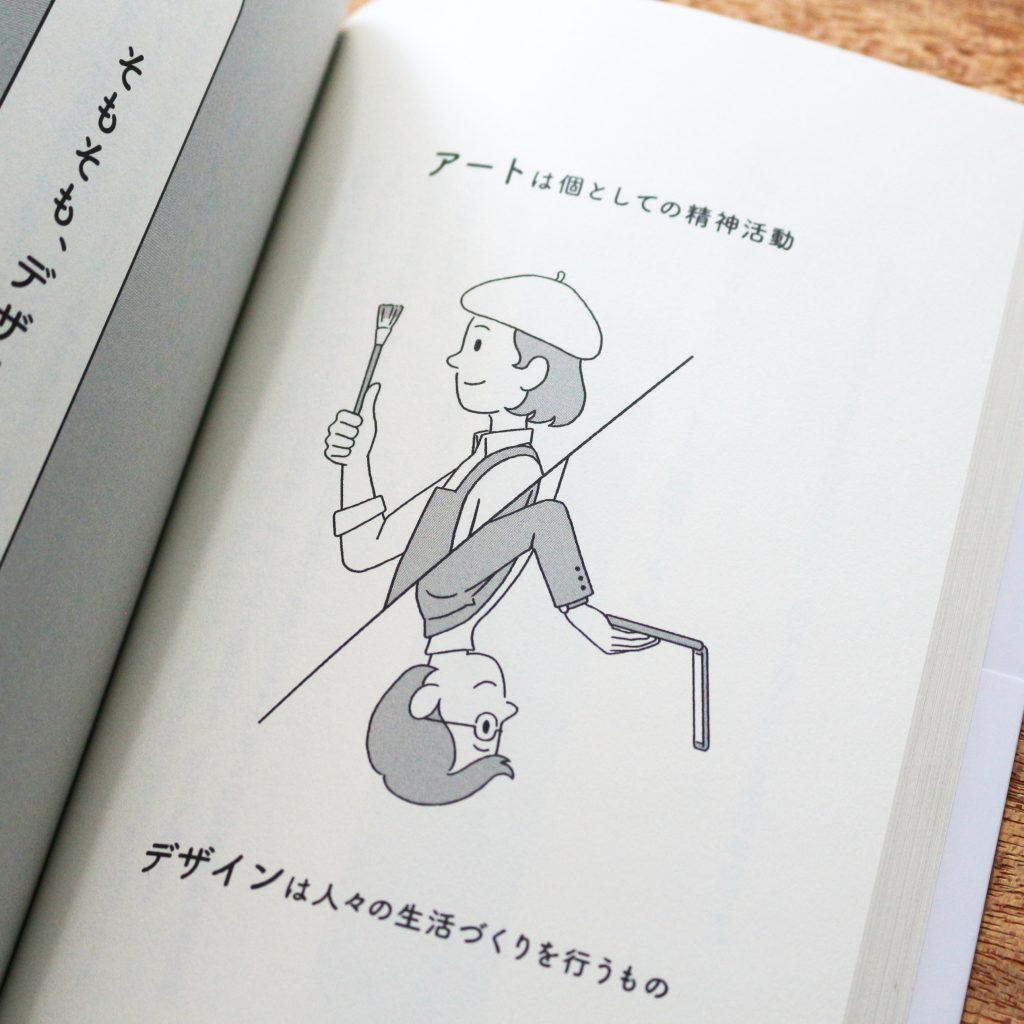 そもそも、デザ
アートは個としての精神活動
デザインは人々の生活づくりを行うもの